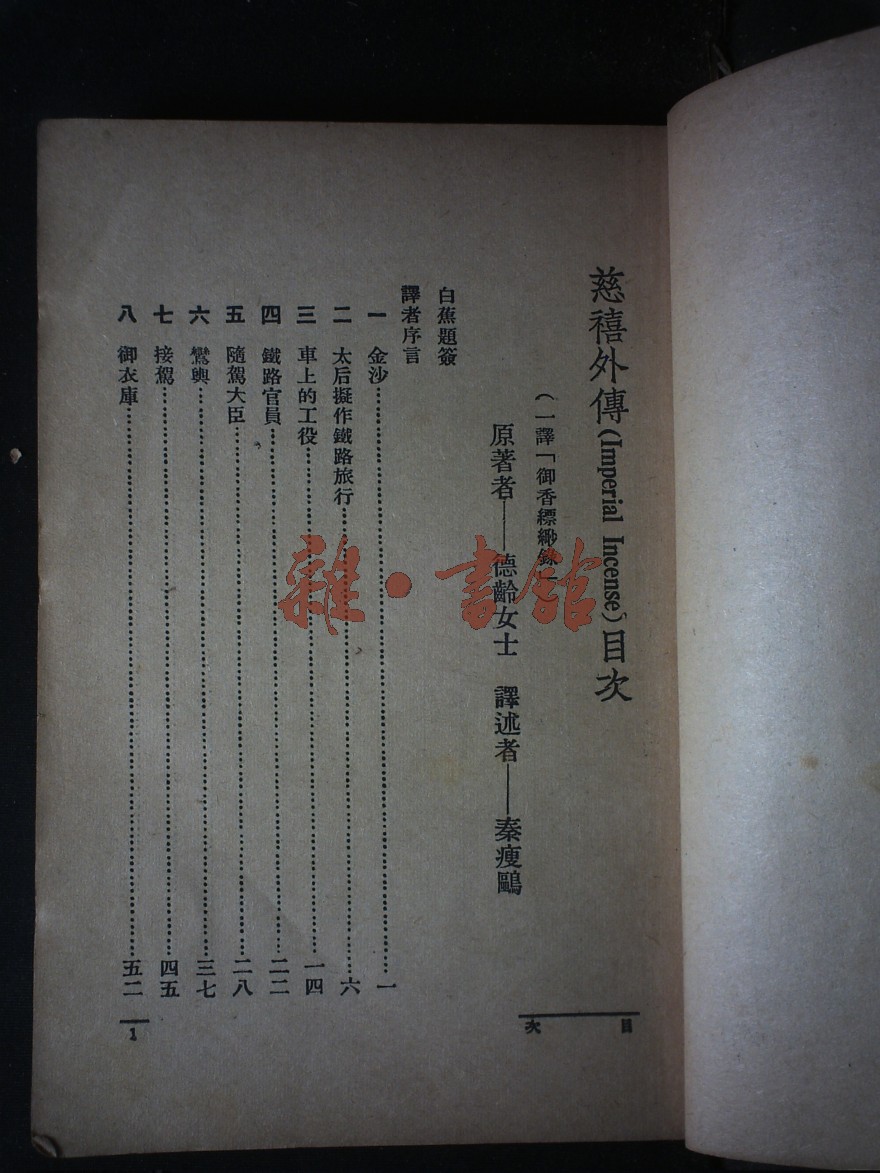 慈禧外傳(Imperial Incense)目次
(一譯「御香縹緲錄」
原著者——德齡女士 譯述者——秦瘦鷗
白蕉題簽
譯者序言
一 金沙……一
二 太后擬作鐵路旅行……六
三 車上的工役……一四
四 鐵路官員……二二
五 隨駕大臣……二八
六 鸞輿……三七
七 接駕……四五
八 御衣庫……五二
目次
1
雜·書館